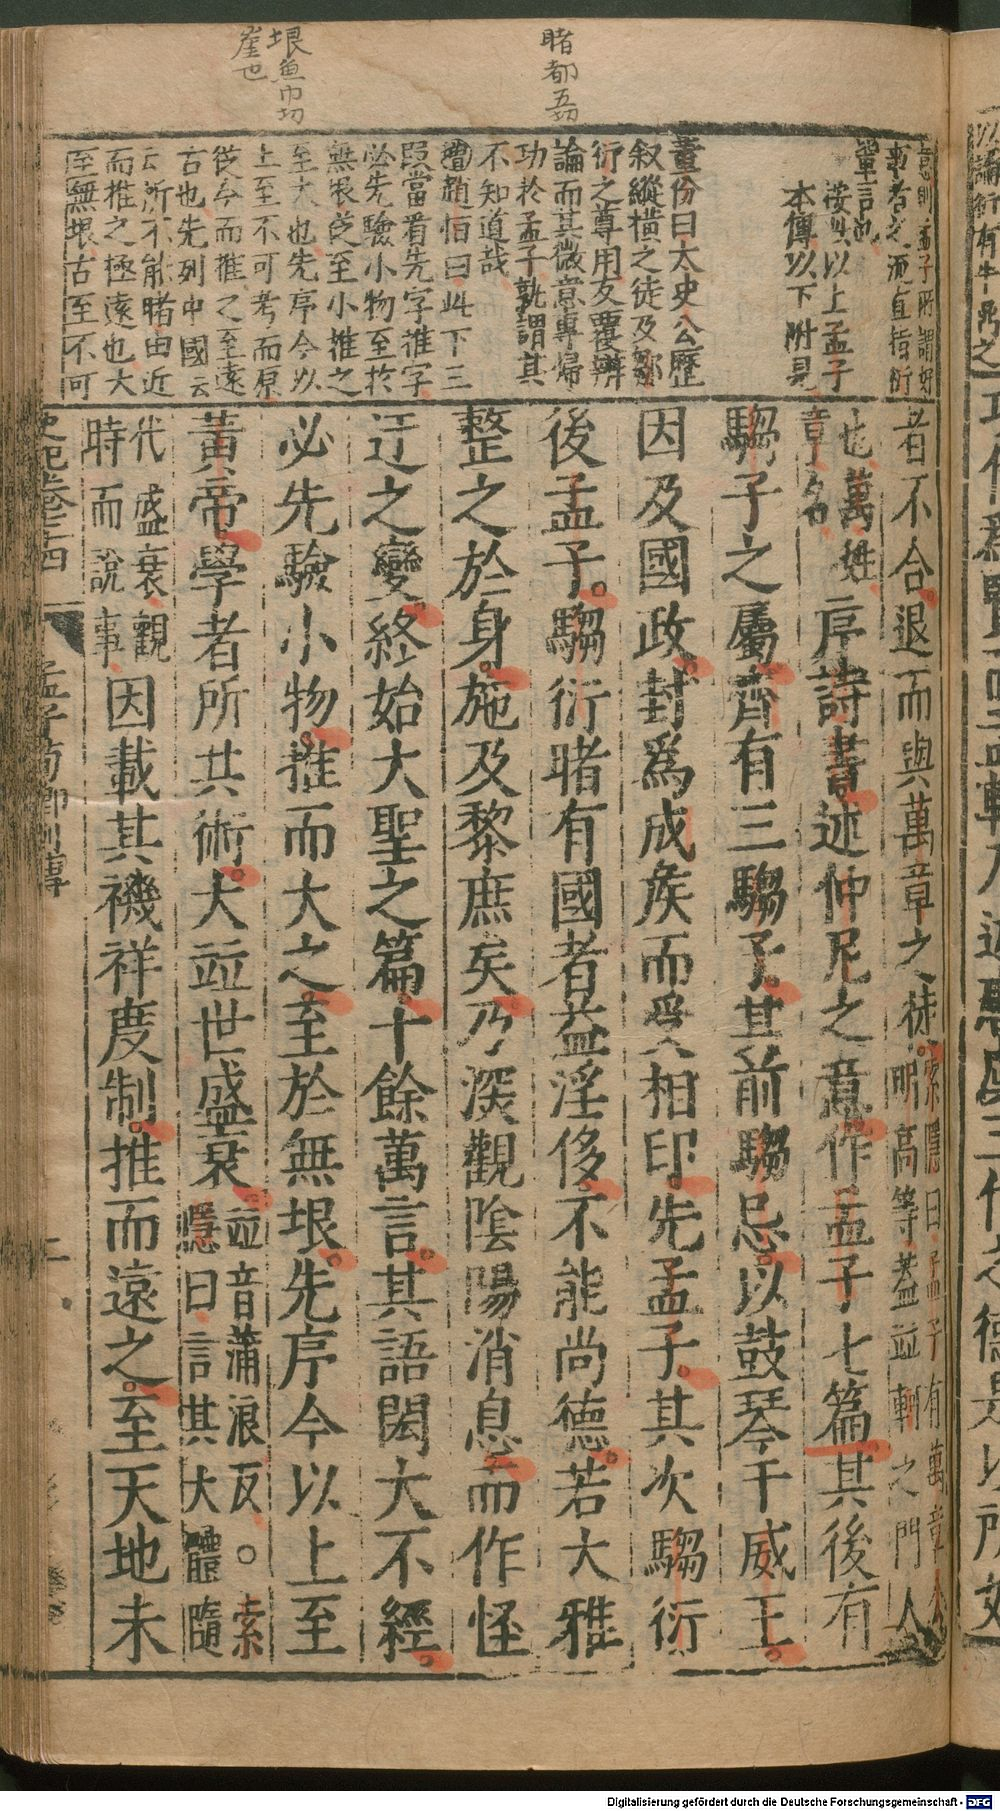 睹都五切
垠魚巾切
崖也
意則孟子所謂好
事者爲之而直指衍
輩言也
按此以上孟子
本傳以下附見
董份曰太史公歷
叙縱橫之徒及鄒
衍之尊用反覆辨
論而其微意專歸
功於孟子孰謂其
不知道哉
趙恒曰此下三
段當看先字推字
必先驗小物至於
無垠從至小推之
至大也先序今以
上至不可考而原
從今而推之至遠
古也先列中國云
云所不能睹由近
而推之極遠也大
至無垠古至不可
者不合退而與萬章之徒索隱曰孟子有萬章公
明高等蓋並軻之門人
也萬姓
章名序詩書述仲尼之意作孟子七篇其後有
騶子之屬齊有三騶子其前騶忌以鼓琴干威王
因及國政封爲成侯而受相印先孟子其次騶衍
後孟子騶衍睹有國者益淫侈不能尚德若大雅
整之於身施及黎庶矣乃深觀陰陽消息而作怪
迂之變終始大聖之篇十餘萬言其語閎大不經
必先驗小物推而大之至於無垠先序今以上至
黃帝學者所共術大並世盛衰並音蒲浪反。索
隱曰言其大體隨
代盛衰觀
時而說事因載其禨祥度制推而遠之至天地未
史記卷七十四
孟子荀卿列傳
二
Digitalisierung gefördert durch die Deutsche Forschungsgemeinschaft - DFG